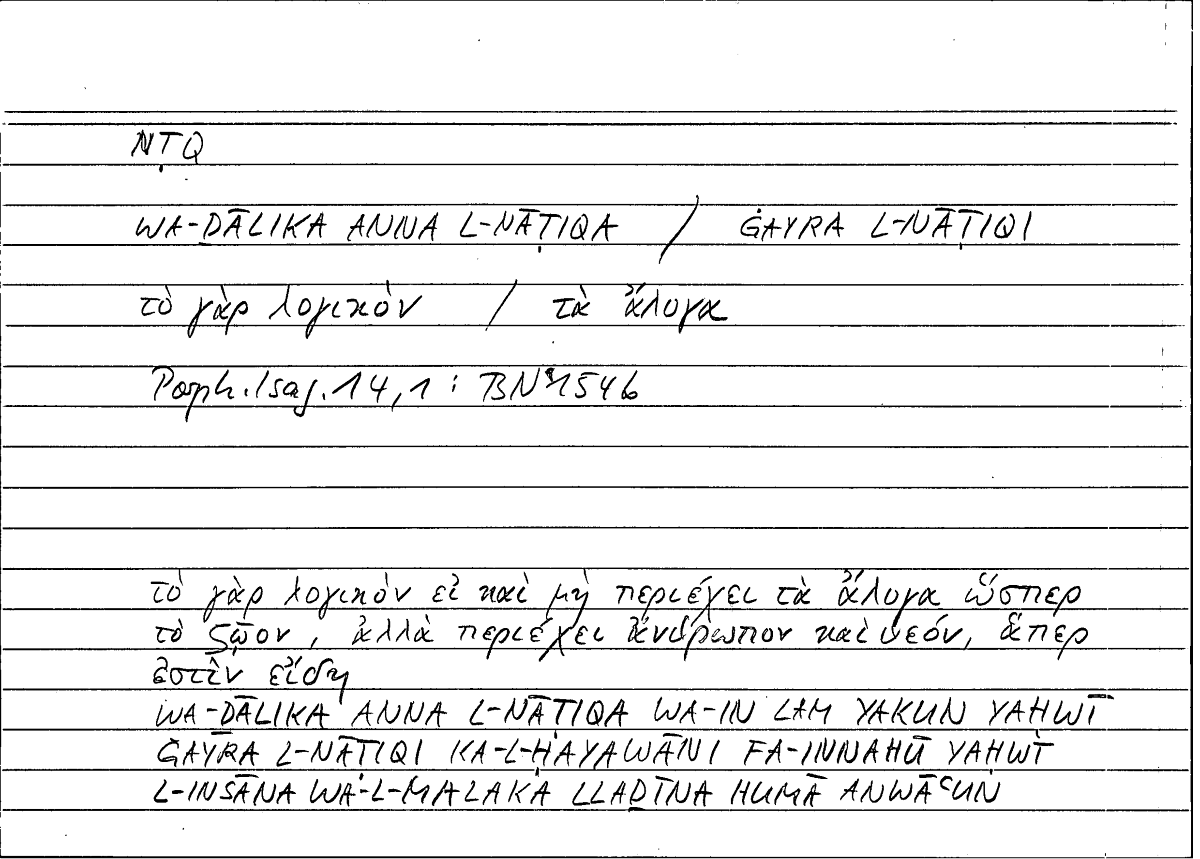 NṬQ
WA-ḎĀLIKA ANNA L-NĀṬIQA / ĠAYRA L-NĀṬIQI
τὸ γὰρ λογικὸν / τὰ ἄλογα
Porph. Isag. 14,1 : BN 1546
τὸ γὰρ λογικὸν εἰ καὶ μὴ περιέχει τὰ ἄλογα ὥσπερ
τὸ ζῷον, ἀλλὰ περιέχει ἄνθρωπον καὶ θεόν, ἅπερ
ἐστὶν εἴδη
WA-ḎĀLIKA ANNA L-NĀṬIQA WA-IN LAM YAKUN YAHWĪ
ĠAYRA L-NĀṬIQI KA-L-ḤAYAWĀNI FA-INNAHŪ YAHWĪ
L-INSĀNA WA-L-MALAKA LLAḎĪNA HUMĀ ANWĀʿUN